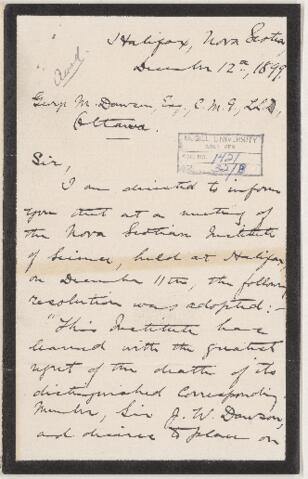 Ansd
Halifax, Nova Scotia,
December 12th, 1899
George M. Dawson Esq, C.M.G, LL.D,
Ottawa.
McGILL UNIVERSITY
ARCHIVES
ACC. NO. 1421
REF.
Sir,
I am directed to inform
you that at a meeting of
the Nova Scotian Institute
of Science, held at Halifax,
on December 11th, the following
resolution was adopted:-
"This Institute have
learned with the greatest
regret of the death of its
distinguished Corresponding
Member, Sir J. W. Dawson,
and desires to place on